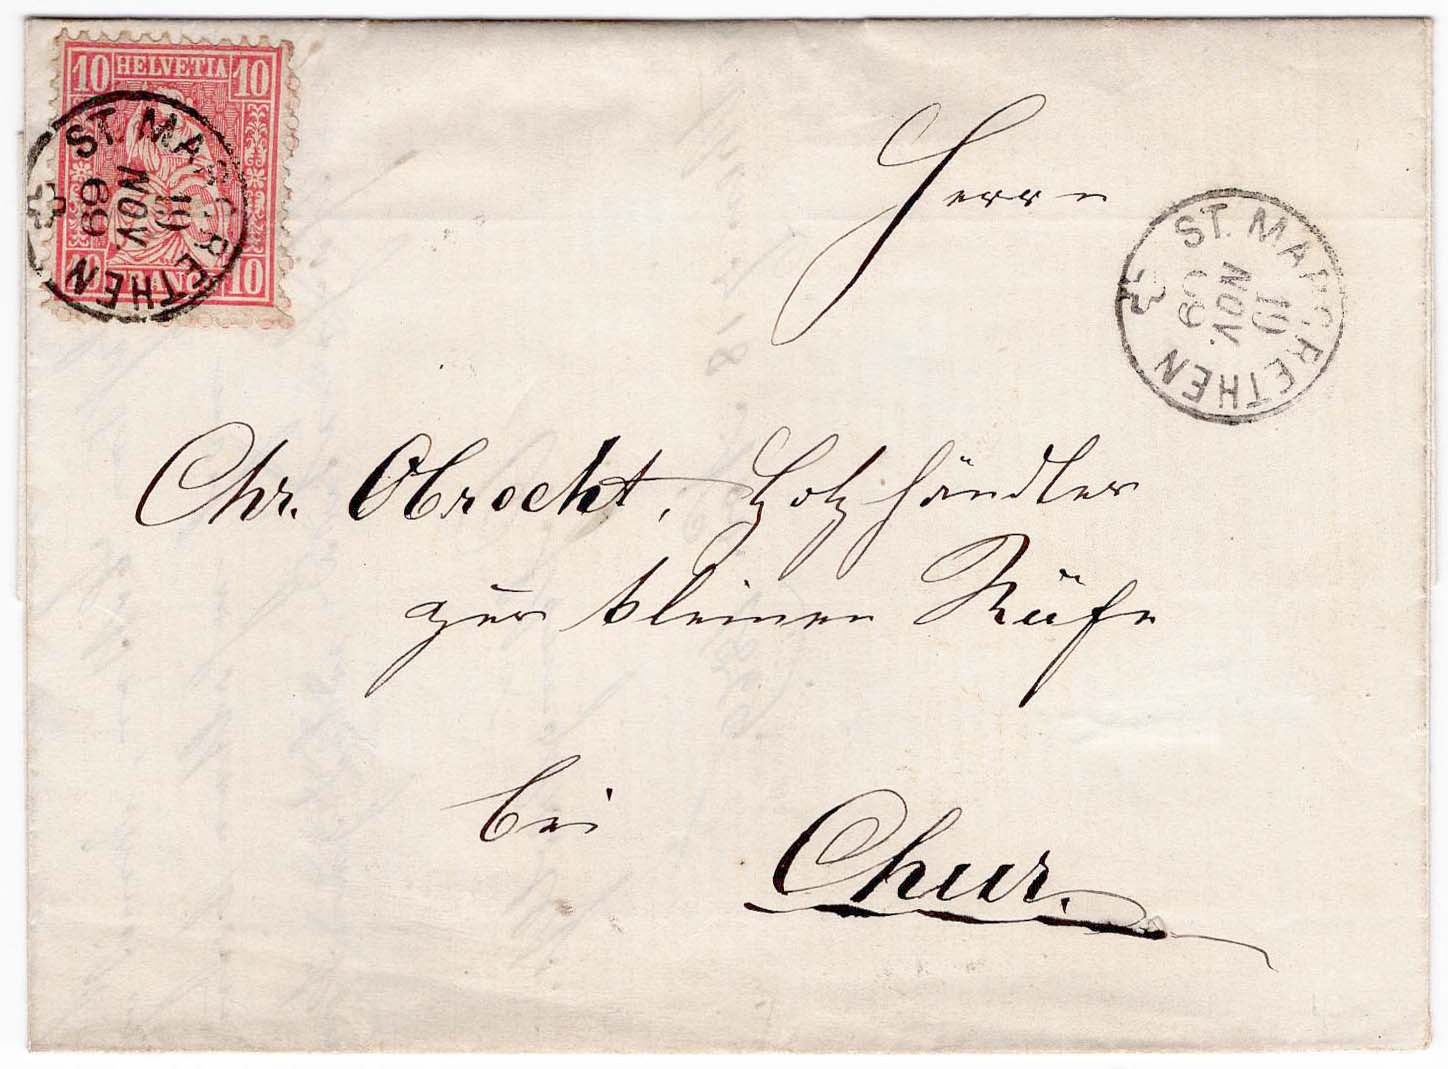 10 HELVETIA 10
10 FRANCO 10
ST. MARGRETHEN
10
NOV.
69
Herrn
ST. MARGRETHEN
10
NOV.
69
Chr. Obrecht, Holzhändler
zur kleinen Rüfe
bei
Chur.